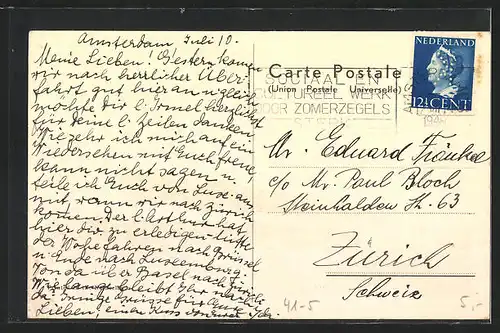 Amsterdam Juli 10.
Meine Lieben! Gestern kamen
wir nach herrlicher Über-
fahrt gut hier an u. gleich
möchte Dir l. Irmel herzlichst
für Deine l. Zeilen danken
Wie sehr ich mich auf ein
Wiedersehen mit Euch freue
kann nicht sagen u.
teile ich Euch von Lux. aus
mit, wann wir nach Zürich
kommen. Der l. Arthur hat
hier div. zu erledigen, Mitte
der Woche fahren nach Brüssel
u. Ende nach Luxemburg.
Von da über Basel nach Zürich.
Wie lange bleibt Ihr noch
da? Innige Grüsse für Euch
Lieben! einen Kuss von Eurer
Carte Postale
(Union Postale Universelle)
SOCIAAL EN
CULTUREEL WERK
DOOR ZOMERZEGELS
STEUN
NEDERLAND
12½ CENT
Mr. Eduard Fränkel
c/o Mr. Paul Bloch
Steinhalden St. 63
Zürich
Schweiz
41-5
5,-